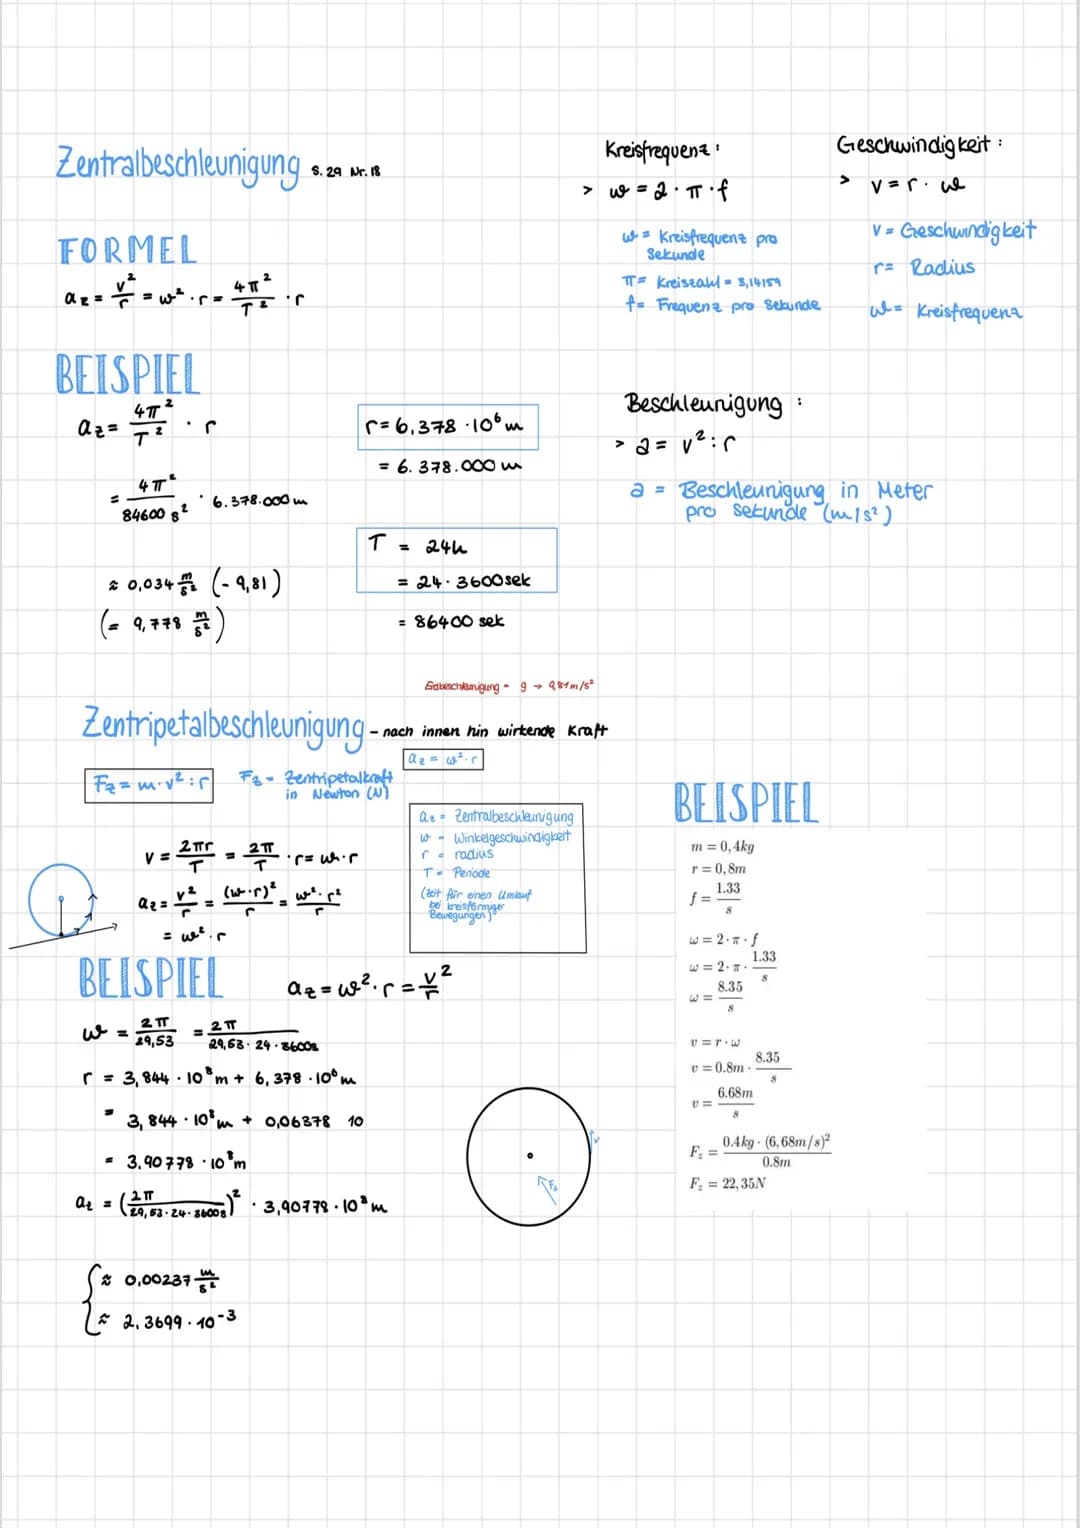 Zentralbeschleunigung S. 29 Nr. 18
FORMEL
a_z = v²/r = ω² · r = 4π²/T² · r
BEISPIEL
a_z = 4π²/T² · r
= 4π²/84600 s² · 6.378.000 m
≈ 0,034 m/s² (- 9,81)
(= 9,778 m/s²)
r = 6,378 · 10⁶ m
= 6.378.000 m
T = 24h
= 24 · 3600 sek
= 86400 sek
Kreisfrequenz :
> ω = 2 · π · f
ω = Kreisfrequenz pro
Sekunde
π = Kreiszahl = 3,14159
f = Frequenz pro Sekunde
Geschwindigkeit :
> v = r · ω
v = Geschwindigkeit
r = Radius
ω = Kreisfrequenz
Beschleunigung :
> a = v² : r
a = Beschleunigung in Meter
pro Sekunde (m/s²)
Erdbeschleunigung = g → 9,81 m/s²
Zentripetalbeschleunigung - nach innen hin wirkende Kraft
a_z = ω² · r
F_z = m · v² : r
F_z = Zentripetalkraft
in Newton (N)
v = 2πr/T = 2π/T · r = ω · r
a_z = v²/r = (ω · r)²/r = ω² · r²/r
= ω² · r
a_z = Zentralbeschleunigung
ω = Winkelgeschwindigkeit
r = radius
T = Periode
(zeit für einen Umlauf
bei kreisförmiger
Bewegungen)
BEISPIEL
a_z = ω² · r = v²/r
ω = 2π/29,53 = 2π/29,53 · 24 · 3600s
r = 3,844 · 10⁸ m + 6,378 · 10⁶ m
= 3,844 · 10⁸ m + 0,06378 10
= 3,90778 · 10⁸ m
a_z = (2π/29,53 · 24 · 3600s)² · 3,90778 · 10⁸ m
≈ 0,00237 m/s²
≈ 2,3699 · 10⁻³
v
F_z
BEISPIEL
m = 0,4kg
r = 0,8m
f = 1.33/s
ω = 2 · π · f
ω = 2 · π · 1.33/s
ω = 8.35/s
v = r · ω
v = 0.8m · 8.35/s
v = 6.68m/s
F_z = 0.4kg · (6,68m/s)²/0.8m
F_z = 22,35N